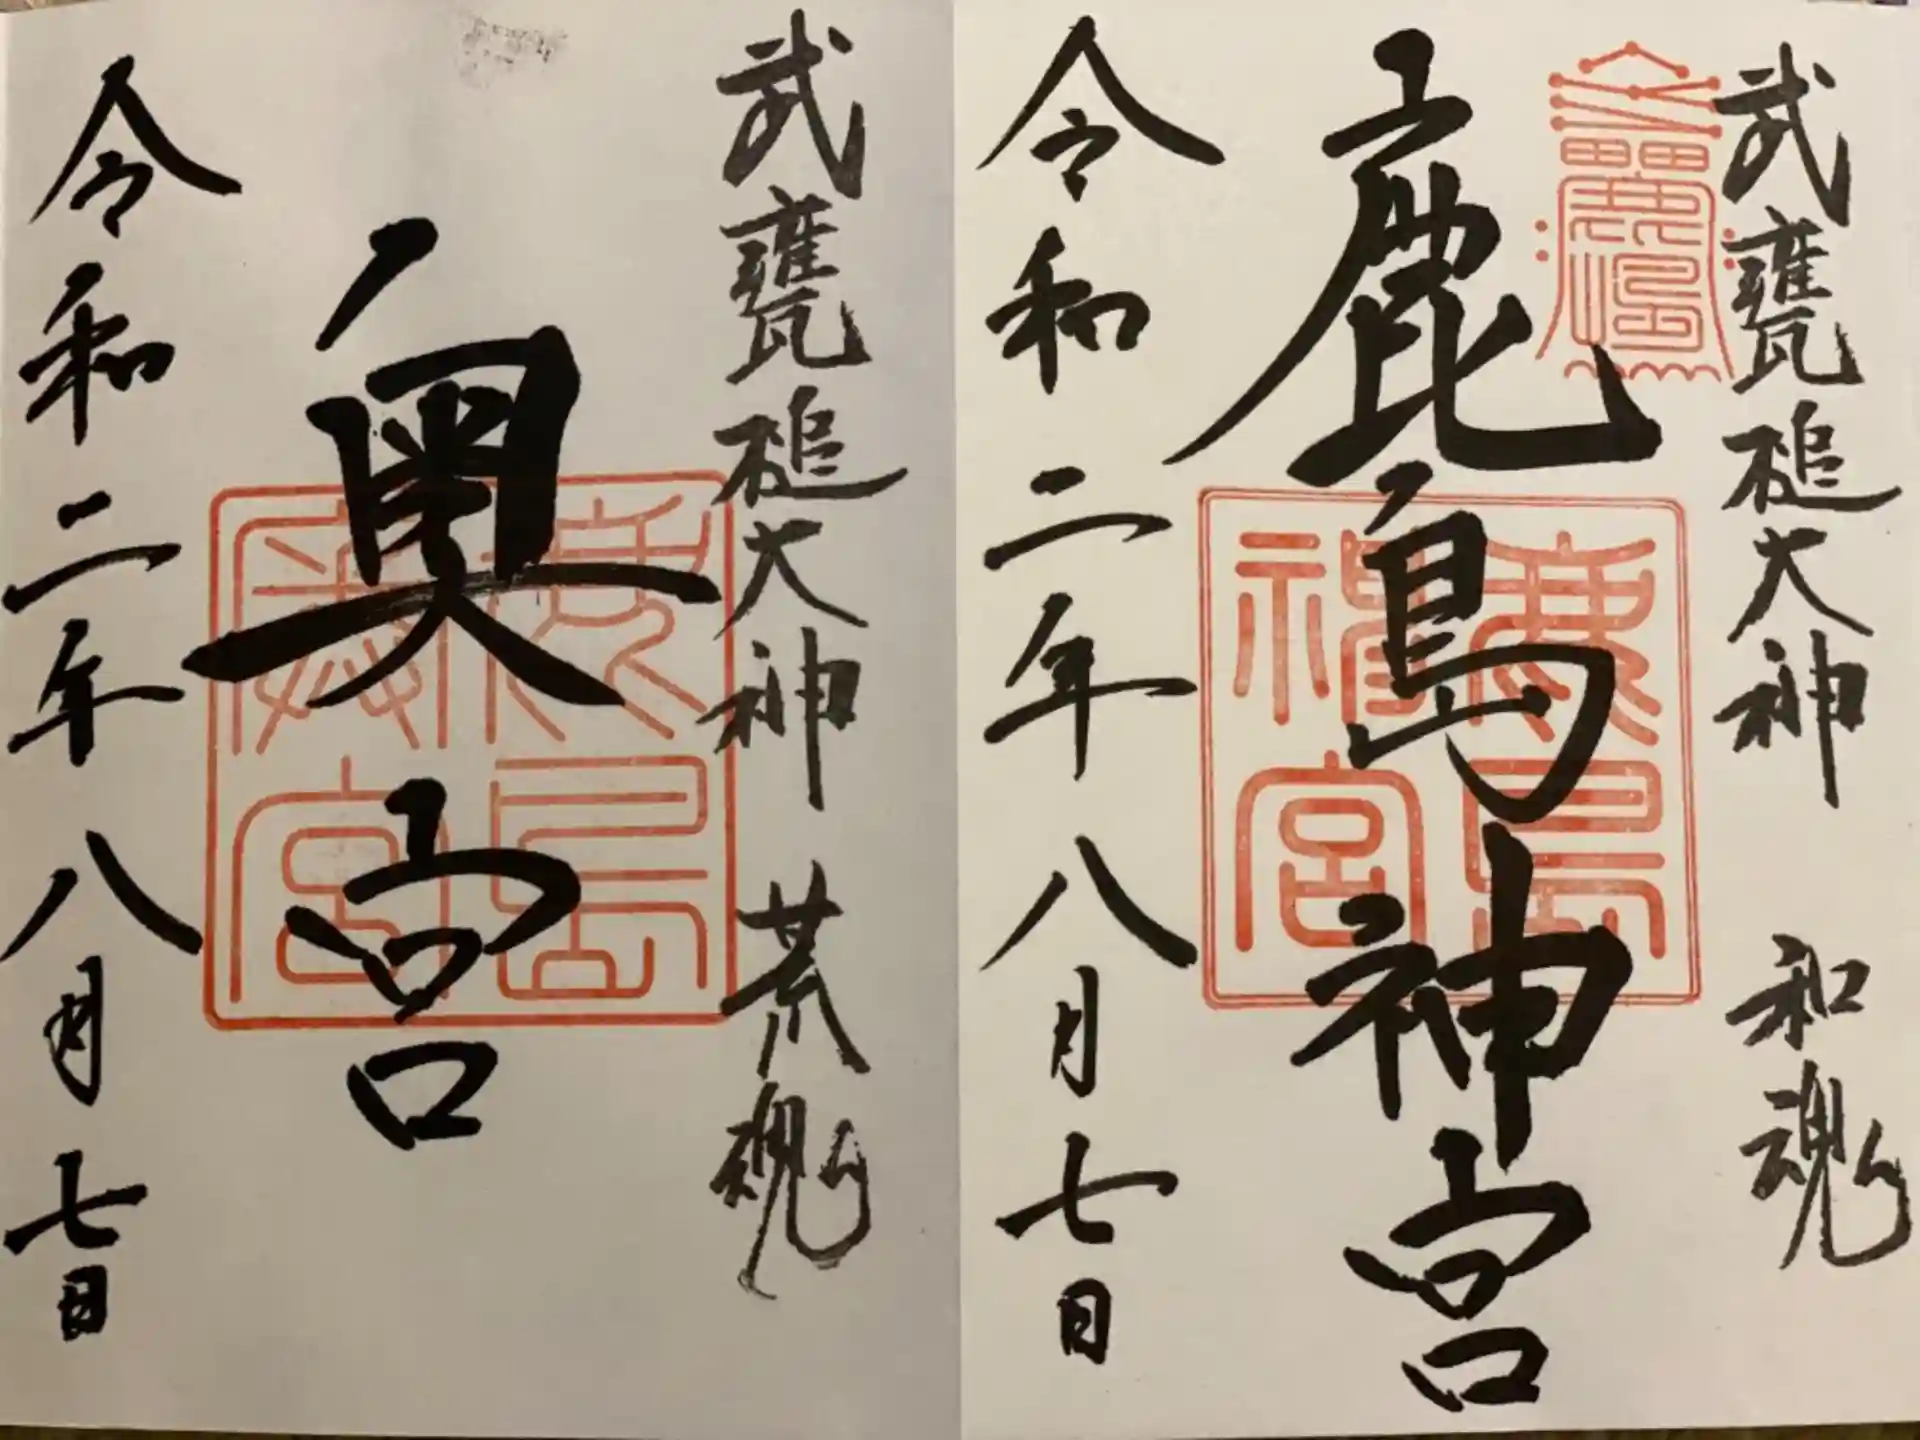 武甕槌大神 和魂
鹿島神宮
令和二年八月七日
鹿島神宮
武甕槌大神 荒魂
奥宮
令和二年八月七日